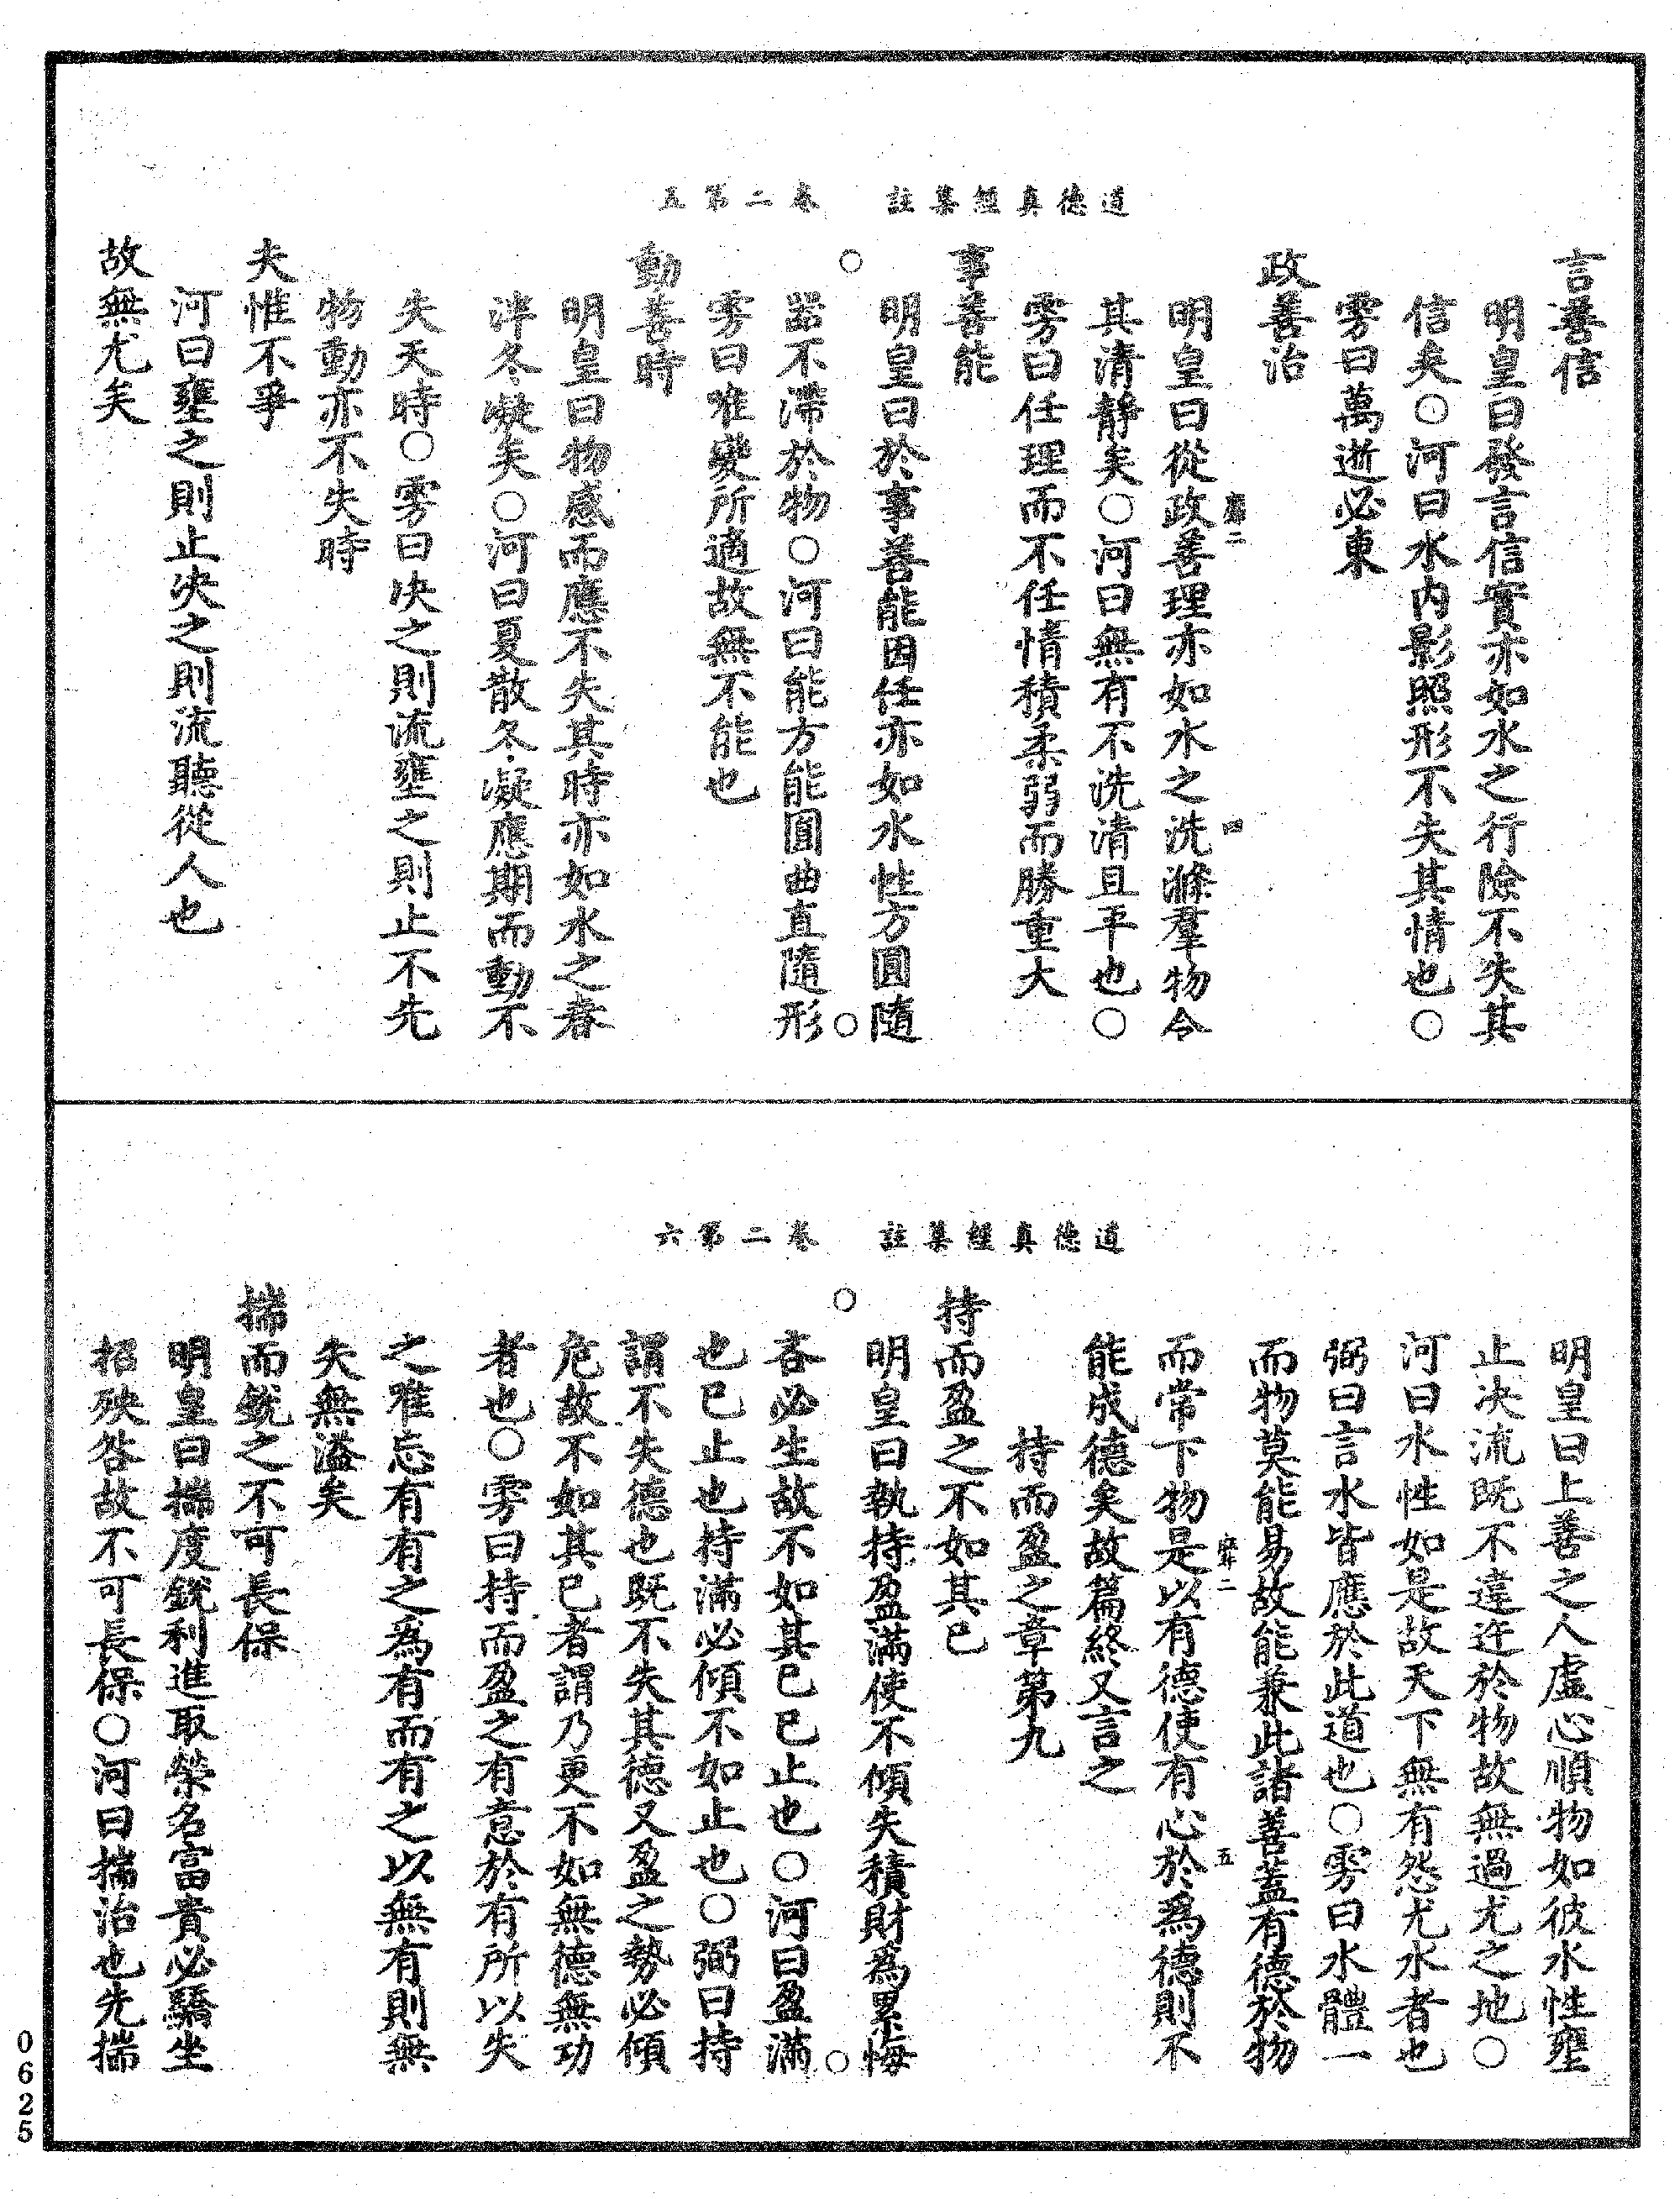 道德真經集註　卷二第五
言善信
明皇曰發言信實亦如水之行險不失其
信矣○河曰水内影照形不失其情也○
雱曰萬逝必東
政善治
二
四
明皇曰從政善理亦如水之洗滌羣物令
其清靜矣○河曰無有不洗清且平也○
雱曰任理而不任情積柔弱而勝重大
事善能
明皇曰於事善能因任亦如水性方圓隨
器不滯於物○河曰能方能圓曲直隨形
雱曰唯變所適故無不能也
動善時
明皇曰物感而應不失其時亦如水之春
泮冬凝矣○河曰夏散冬凝應期而動不
失天時○雱曰決之則流壅之則止不先
物動亦不失時
夫惟不爭
河曰壅之則止決之則流聽從人也
故無尤矣
道德真經集註　卷二第六
明皇曰上善之人虛心順物如彼水性壅
止決流既不違迕於物故無過尤之地○
河曰水性如是故天下無有怨尤水者也
弼曰言水皆應於此道也○雱曰水體一
而物莫能易故能兼此諸善蓋有德於物
二
五
而常下物是以有德使有心於爲德則不
能成德矣故篇終又言之
持而盈之章第九
持而盈之不如其已
明皇曰執持盈滿使不傾失積財爲累悔
吝必生故不如其已已止也○河曰盈滿
也已止也持滿必傾不如止也○弼曰持
謂不失德也既不失其德又盈之勢必傾
危故不如其已者謂乃更不如無德無功
者也○雱曰持而盈之有意於有所以失
之雖忘有有之爲有而有之以無有則無
失無溢矣
揣而銳之不可長保
明皇曰揣度銳利進取榮名富貴必驕坐
招殃咎故不可長保○河曰揣治也先揣
0625